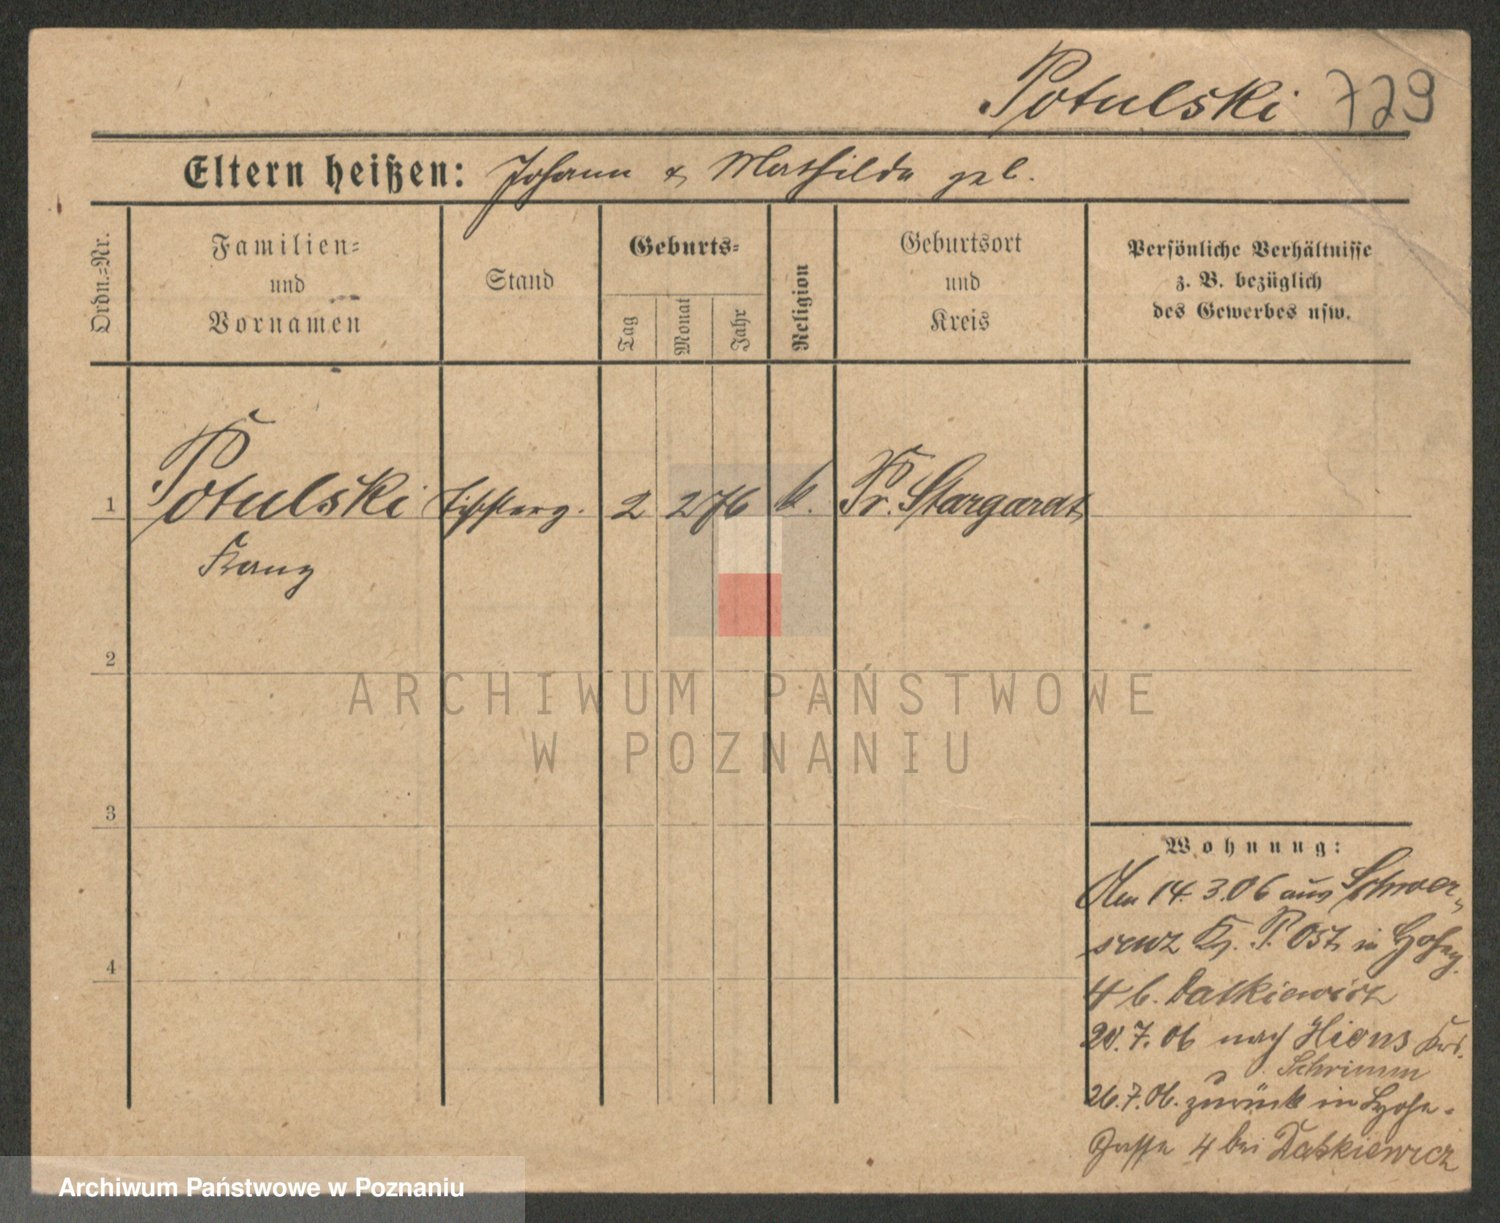 Potulski 729
Eltern heißen: Johann & Mathilde geb.
Ordn.=Nr.
Familien=
und
Vornamen
Stand
Geburts=
Tag
Monat
Jahr
Religion
Geburtsort
und
Kreis
Persönliche Verhältnisse
z. B. bezüglich
des Gewerbes usw.
1 Potulski 2 2 76 k. Pr. Stargardt
Franz
2
3
4
Wohnung:
Am 14.3.06 aus Schwer-
senz Kr. P. Ost, in
4 b. Datkiewicz
20.7.06 nach Hions Krs.
Schrimm
26.7.06. zurück in
Gasse 4 bei Datkiewicz
ARCHIWUM PAŃSTWOWE
W POZNANIU
Archiwum Państwowe w Poznaniu